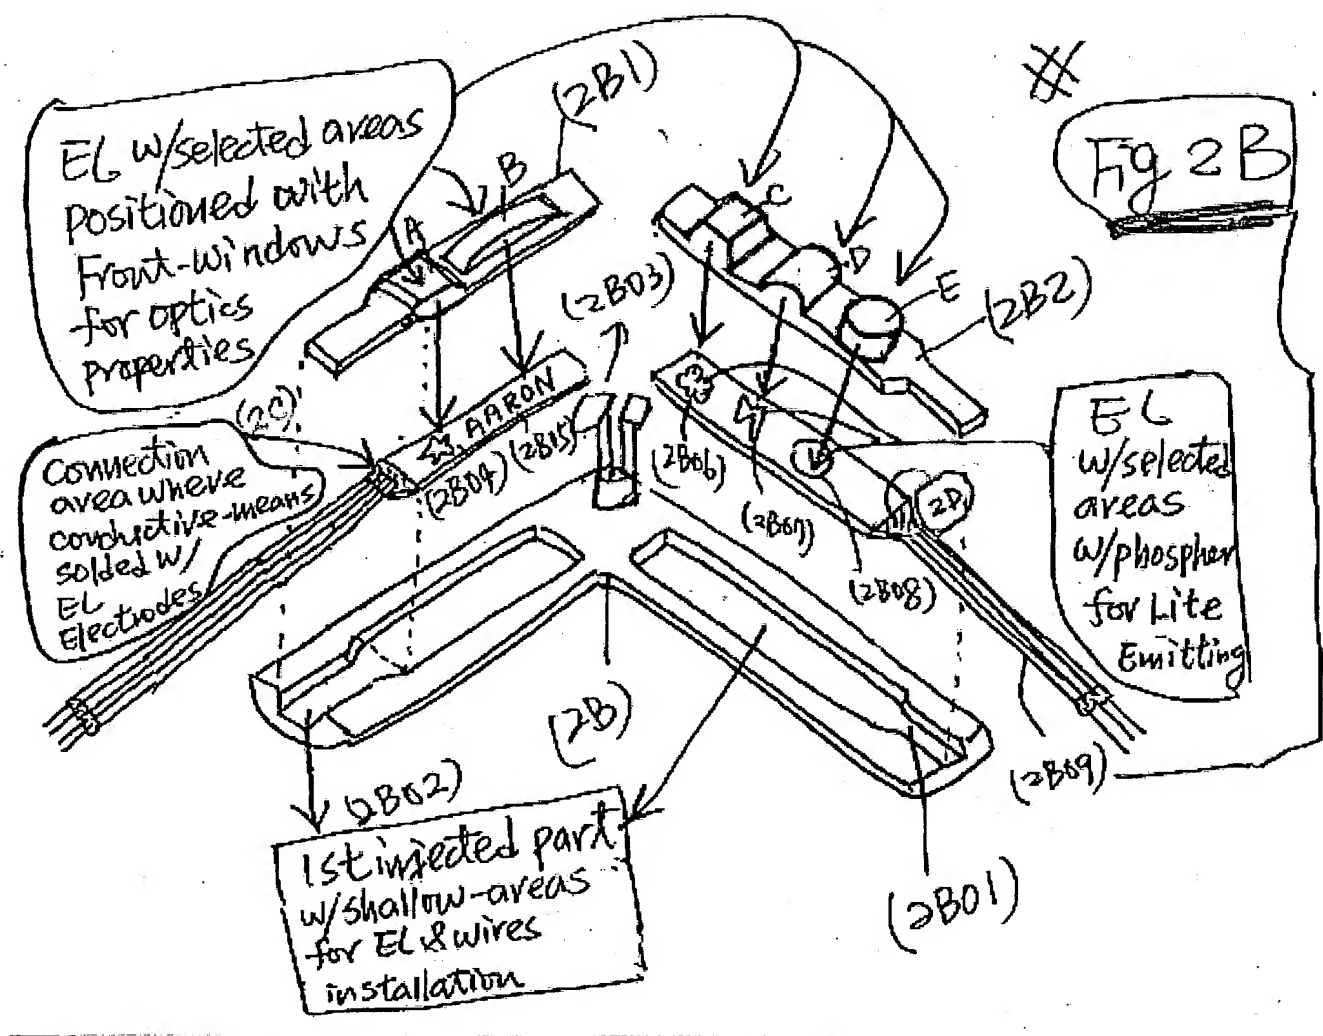 Fig 2B
(2B1)
EL w/selected areas
positioned with
Front-windows
for optics
properties
A
B
C
D
E
(2B03)
(2B2)
AARON
(2C)
(2B04)
(2B15)
(2B06)
(2B07)
(2B08)
2D
Connection
area where
conductive-means
solded w/
EL
Electrodes
EL
w/selected
areas
w/phospher
for Lite
Emitting
(2B)
(2B02)
(2B09)
(2B01)
1st injected part
w/shallow-areas
for EL & wires
installation